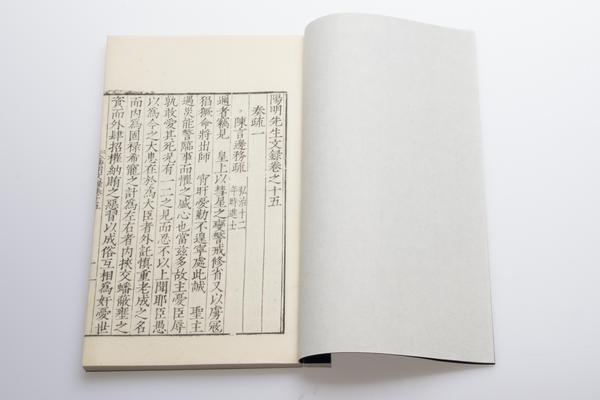 陽明先生文録卷之十五
奏疏一
陳言邊務疏 弘治十二年時進士
邇者竊見 皇上以彗星之變警戒修省又以虜寇
猖獗命將出師 宵旰憂勤不遑寧處此誠 聖主
遇災能警臨事而懼之盛心也當茲多故主憂臣辱
孰敢愛其死況有一二之見而忍不以上聞耶臣愚
以為今之大患在於為大臣者外託慎重老成之名
而内為固禄希寵之計為左右者内挾交蟠蔽壅之
資而外肆招權納賄之惡習以成俗互相為奸憂世